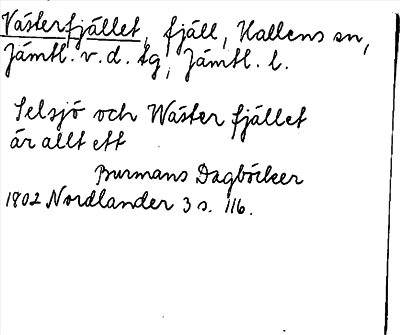 Västerfjället, fjäll, Hallens sn,
Jämtl. v. d. tg, Jämtl. l.
Selsjö och Wäster fjället
är allt ett
Burmans Dagböcker
1802 Nordlander 3 s. 116.